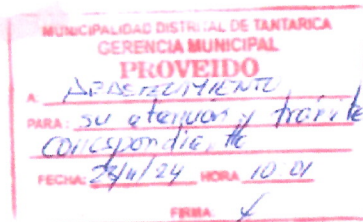 MUNICIPALIDAD DISTRITAL DE TANTARICA
GERENCIA MUNICIPAL
PROVEIDO
A: ABASTECIMIENTO
PARA: su atención y trámite
correspondiente
FECHA: 25/11/24 HORA 10:01
FIRMA